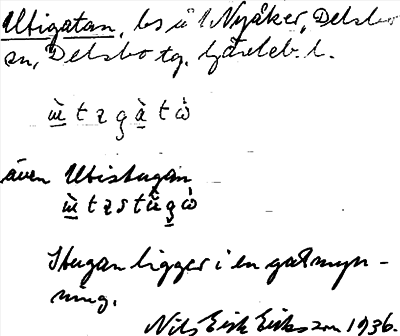 Utigatan, bs å 1 Nyåker, Delsbo
sn, Delsbo tg, Gävleb. l.
även Utistugan
Stugan ligger i en gatmyn-
ning.
Nils Erik Eriksson 1936.